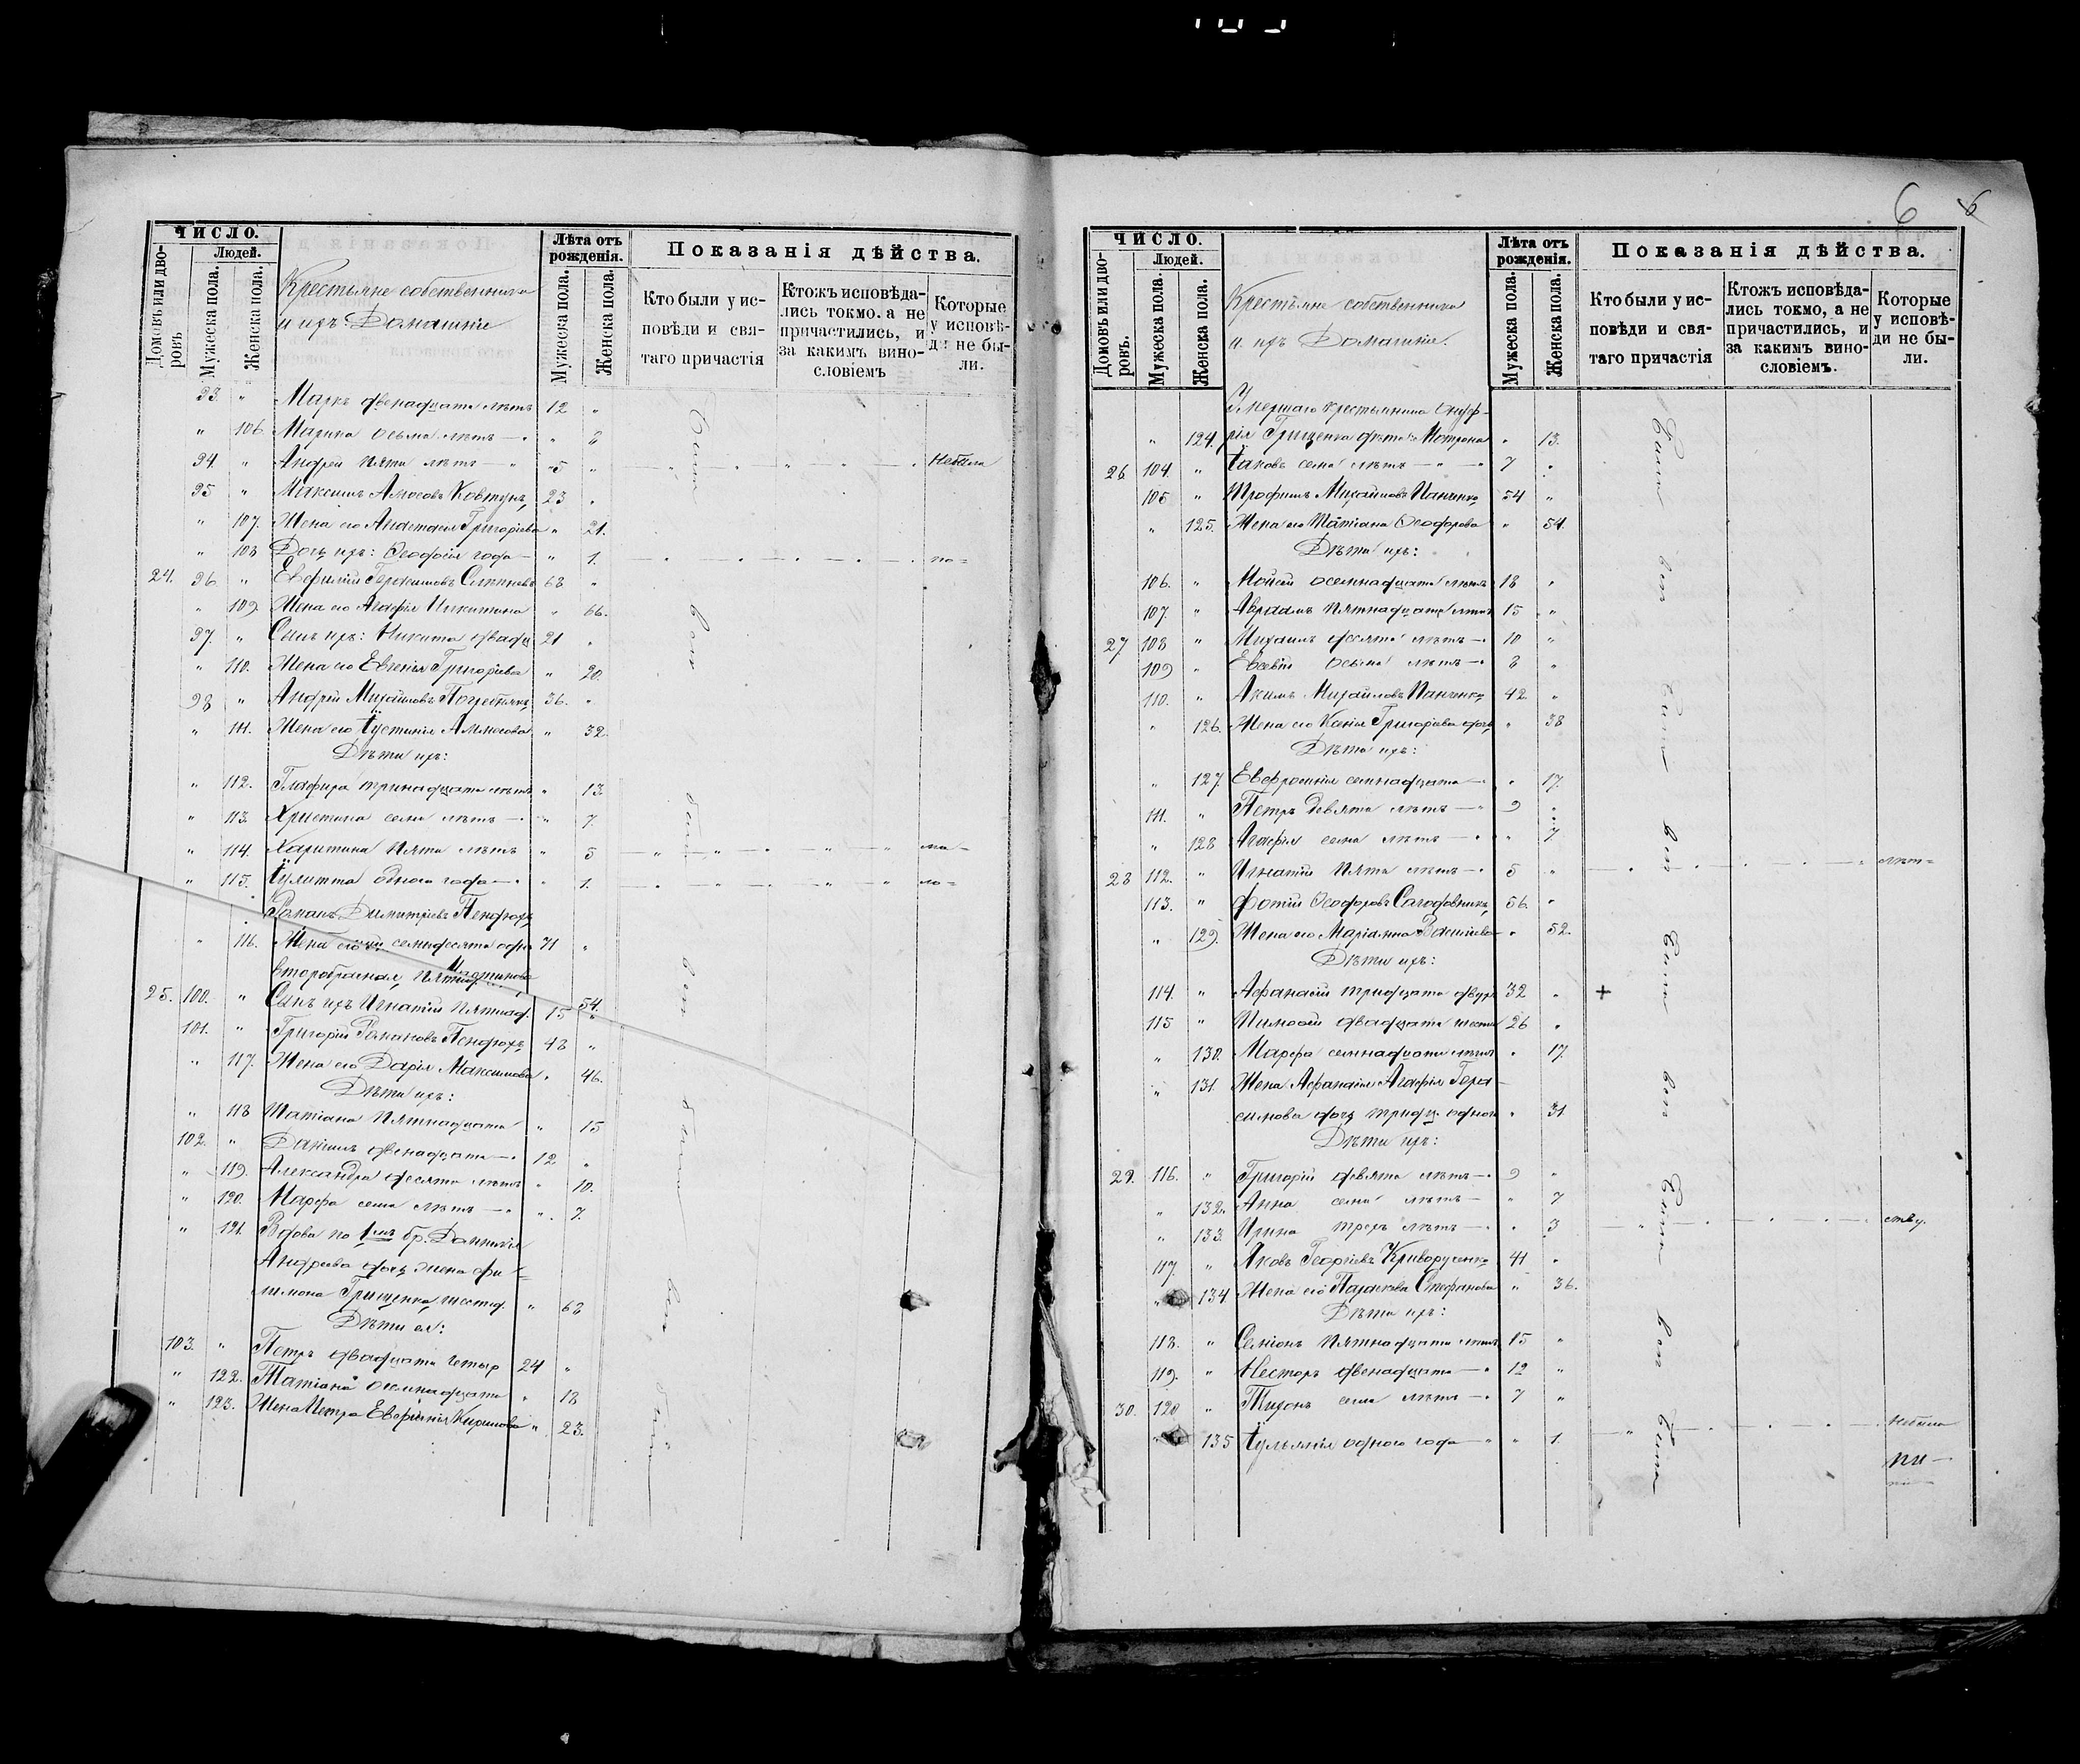 ЧИСЛО.
Людей.
Домовъ или дво-
ровъ
Мужеска пола.
Женска пола.
Крестьяне собственники
и ихъ Домашніе
Лѣта отъ
рожденія.
Мужеска пола.
Женска пола.
Показанія дѣйства.
Кто были у ис-
повѣди и свя-
таго причастія
Ктожъ исповѣда-
лись токмо. а не
причастились, и
за какимъ вино-
словіемъ
Которые
у исповѣ-
ди не бы-
ли.
93 " Маркъ двенадцати лѣтъ 12 "
" 106. Марина осьма лѣтъ " 8
94. " Андрей пяти лѣтъ 5 "
95 " Максимъ Амосовъ Ковтунъ 23 "
" 107. Жена его Анастасія Григоріева " 21.
" 108 Дочь ихъ: Ѳеодосія года " 1.
24. 96. " Евфимій Герасимовъ 68 "
" 109. Жена его Агафія Никитина " 66.
97. " Сынъ ихъ: Никита двадц 21 "
" 110. Жена его Евгенія Григоріева " 20.
98 " Андрей Михайловъ Погребнякъ 36. "
" 111. Жена его Іустинія Аммосова " 32.
Дѣти ихъ:
" 112. Глафира тринадцати лѣтъ " 13.
" 113. Христина семи лѣтъ " 7.
" 114. Харитина пяти лѣтъ " 5
" 115. Іулитта одного года " 1.
Романъ Димитріевъ Пендюхъ
" 116. Жена его семидесяти одн 71 "
второбрачная,
25. 100. " Сынъ ихъ Игнатій пятнад. 15 54.
101. " Григорій Романовъ Пендюхъ 48 "
" 117. Жена его Дарія Максимова " 46.
Дѣти ихъ:
" 118 Татіана пятнадцати " 15
102. " Даніилъ двенадцати 12 "
" 119. Александра десяти лѣтъ " 10.
" 120. Марфа семи лѣтъ " 7.
" 121. Вдова по бр.
Андреева дочь жена Фи-
лимона Грищенка, шестид. " 68
Дѣти ея:
103. " Петръ двадцати четыр 24 "
" 122. Татіана осмнадцати " 18
" 123. Жена Петра Евфимія Кирилова " 23.
6 6
ЧИСЛО.
Людей.
Домовъ или дво-
ровъ.
Мужеска пола.
Женска пола.
Крестьяне собственники
и ихъ Домашніе.
Лѣта отъ
рожденія.
Мужеска пола.
Женска пола.
Показанія дѣйства.
Кто были у ис-
повѣди и свя-
таго причастія
Ктожъ исповѣда-
лись токмо, а не
причастились, и
за какимъ вино-
словіемъ.
Которые
у исповѣ-
ди не бы-
ли.
Умершаго крестьянина Онуф-
" 124. рія Грищенка дѣти: Мотрона " 13.
26 104. " Іаковъ семи лѣтъ 7 "
105 " Трофимъ Михайловъ Панченко 54 "
" 125. Жена его Татіана Ѳеодорова " 54.
Дѣти ихъ:
106. " Моисей осемнадцати лѣтъ 18 "
107. " Авраамъ пятнадцати лѣтъ 15 "
27 108 " Михаилъ десяти лѣтъ 10 "
109 " Евсевій осьми лѣтъ 8 "
110. " Акимъ Михайловъ Панченко 42 "
" 126. Жена его Ксенія Григорьева дочь " 38
Дѣти ихъ:
" 127. Евфросинія семнадцати " 17.
111. " Петръ девяти лѣтъ 9 "
" 128 Агафія семи лѣтъ " 7
28 112. " Игнатій пяти лѣтъ 5 "
113. " Фотій Ѳеодоровъ 56. "
" 129. Жена его Маріанна Васильева " 52.
Дѣти ихъ:
114. " Афанасій тридцати двухъ 32 " +
115 " Тимоѳей двадцати шести 26 "
" 130. Марфа семнадцати лѣтъ " 17.
" 131. Жена Афанасія Агафія Гера-
симова дочь тридц. одного " 31
Дѣти ихъ:
29. 116. " Григорій девяти лѣтъ 9 "
" 132. Анна семи лѣтъ " 7
" 133. Ирина трехъ лѣтъ " 3
117. " Яковъ Георгіевъ Криворученко 41 "
" 134. Жена его Параскева Стефанова " 36.
Дѣти ихъ:
118. " Семіонъ пятнадцати лѣтъ 15 "
119. " Несторъ двенадцати 12 "
30. 120 " Тихонъ семи лѣтъ 7 "
" 135 Іульянія одного года " 1.